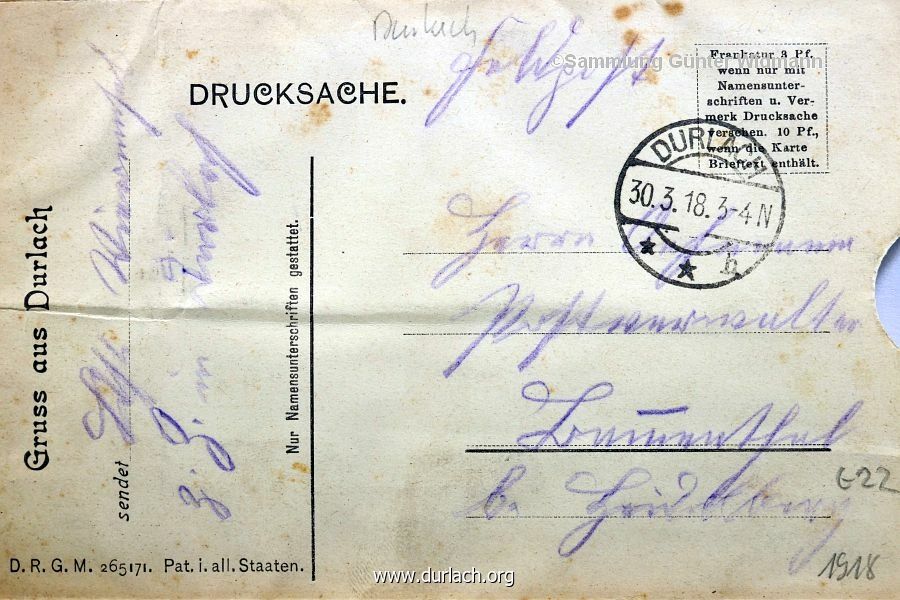 Durlach
Feldpost
DRUCKSACHE.
©Sammlung Günter Widmann
Frankatur 3 Pf.
wenn nur mit
Namensunter-
schriften u. Ver-
merk Drucksache
versehen. 10 Pf.,
wenn die Karte
Brieftext enthält.
DURLACH
30.3.18.3-4N
* * b
Herrn
Postverwalter
Bammenthal
b. Heidelberg
Gruss aus Durlach
sendet
z. Z. in
Nur Namensunterschriften gestattet.
D. R. G. M. 265171. Pat. i. all. Staaten.
G22
1918
www.durlach.org